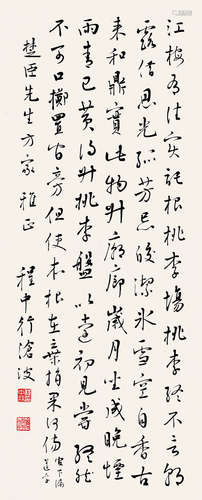 江梅有佳實託根桃李場桃李終不言朝
露借恩光孤芳忌皎潔冰雪空自香古
來和鼎實此物升廟廊歲月坐成晚煙
雨青已黃得升桃李盤以遠初見嘗終然
不可口擲置官旁但使本根在棄捐果何傷 官下
道字
楚臣先生方家雅正
程中行滄波